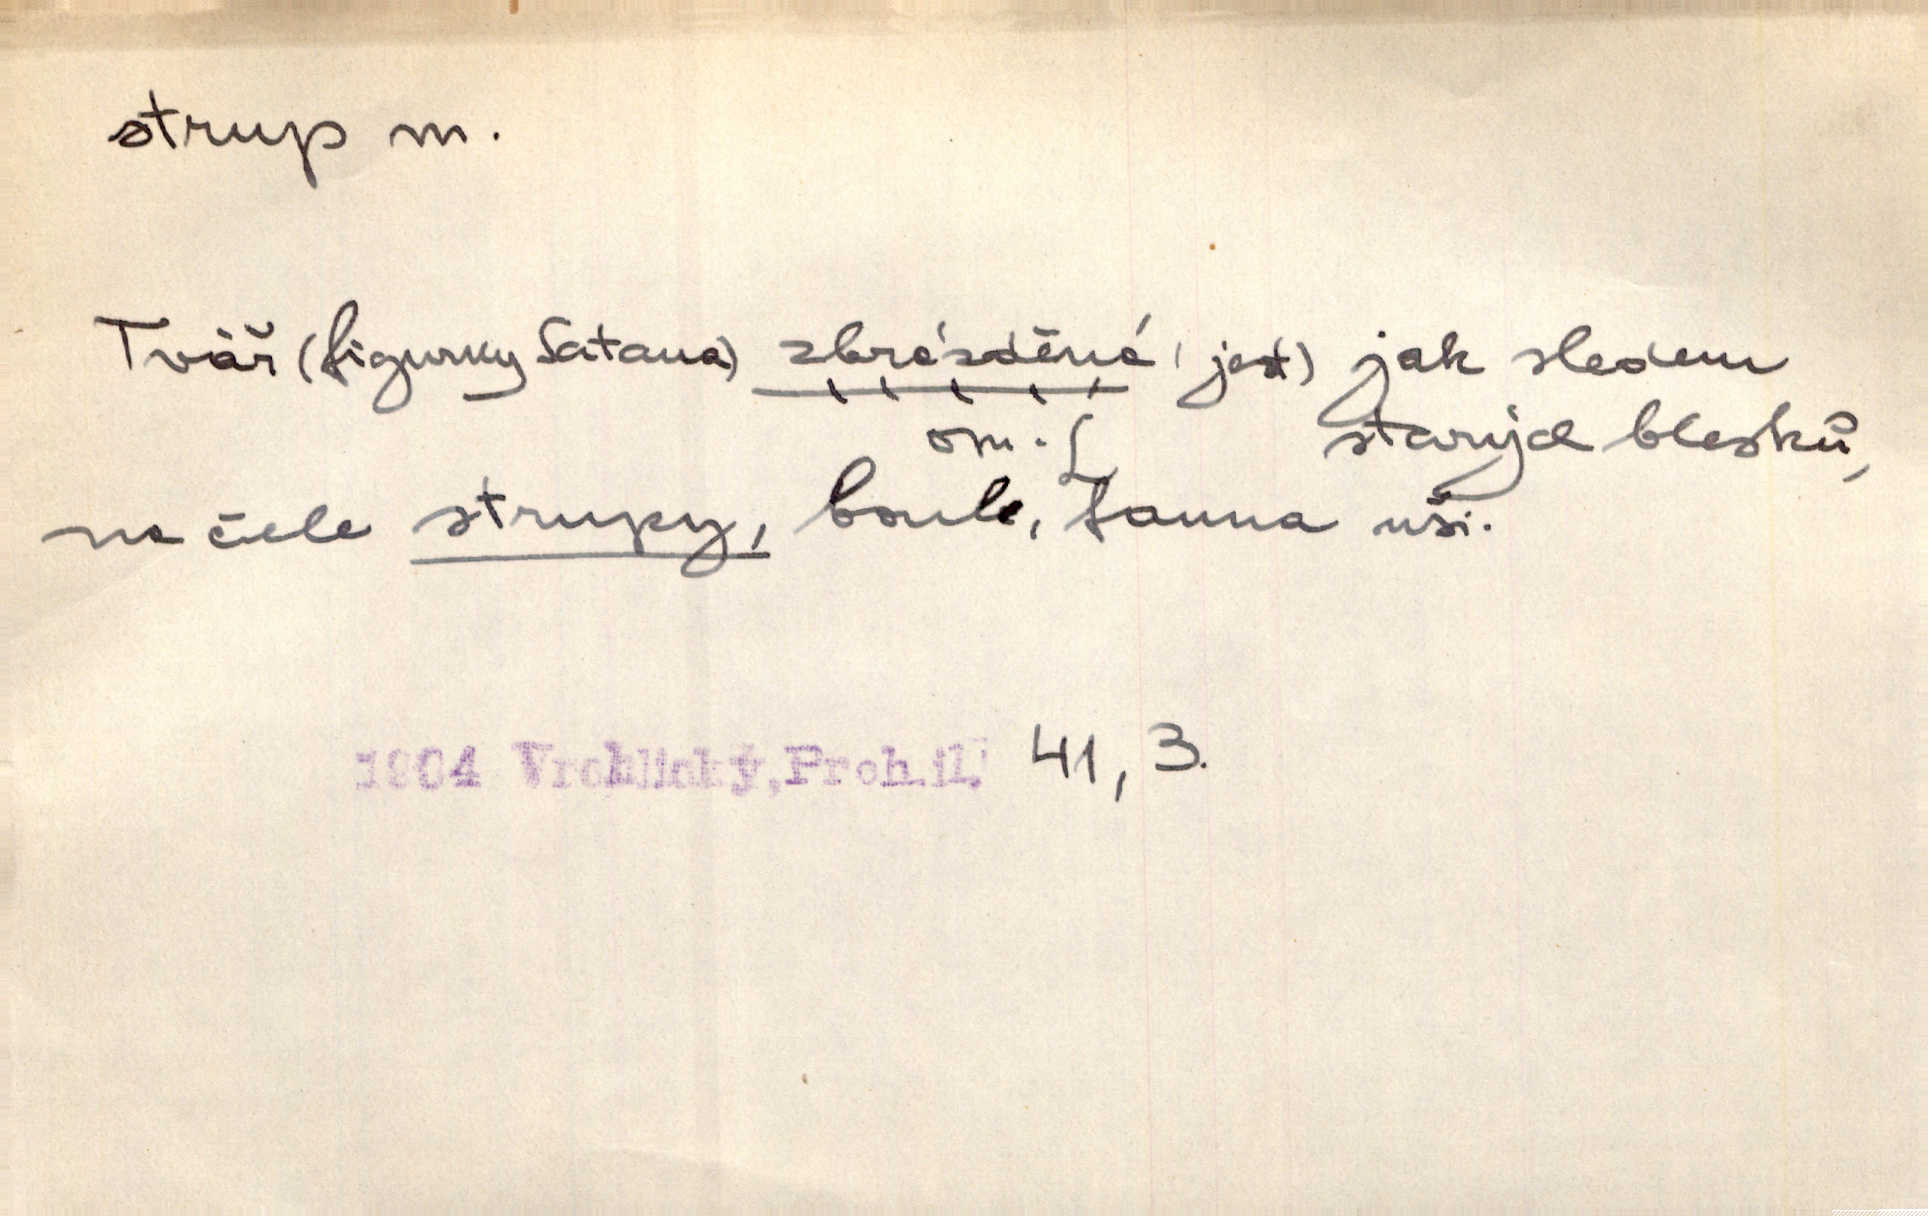 strup m.
Tvář (figurky Satana) zbrázděná (jest) jak sledem
om. starých blesků,
na čele strupy, boule, fauna uši.
1904 Vrchlický, Proh.il. 41, 3.